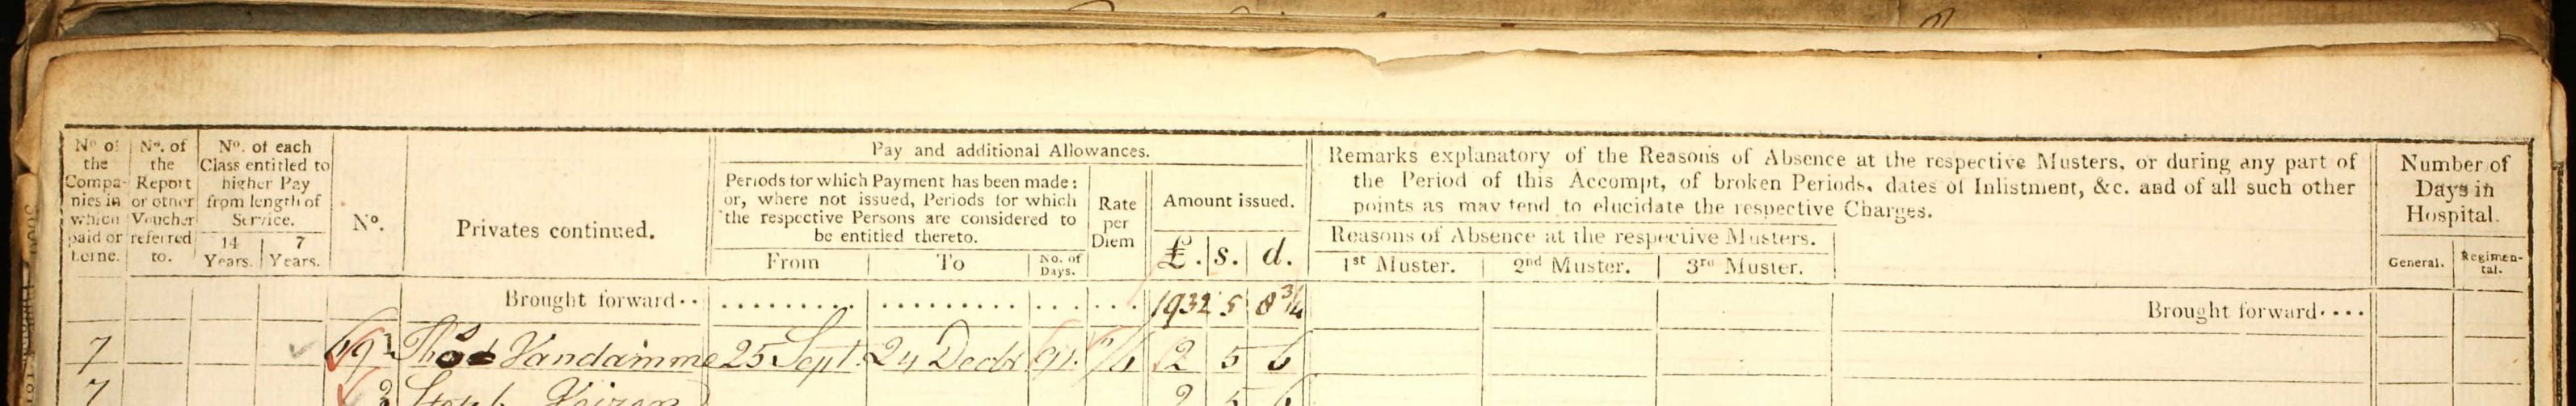 Nº of the Compa- nies in which paid or
Nº. of the Report or other Voucher referred to.
Nº. of each Class entitled to higher Pay from length of Service.
14 Years. 7 Years.
Nº.
Privates continued.
Pay and additional Allowances.
Periods for which Payment has been made: or, where not issued, Periods for which the respective Persons are considered to be entitled thereto.
From To No. of Days.
Rate per Diem
Amount issued.
£. s. d.
Remarks explanatory of the Reasons of Absence at the respective Musters, or during any part of
the Period of this Accompt, of broken Periods, dates of Inlistment, &c. and of all such other
points as may tend to elucidate the respective Charges.
Reasons of Absence at the respective Musters.
1st Muster. 2nd Muster. 3rd Muster.
Number of Days in Hospital.
General. Regimen- tal.
Brought forward·· ......... ......... ... ... 1932 5 8¾ Brought forward····
7 Vandamme 25 Sept. 24 Decr 91 2 5 6
7 2 5 6